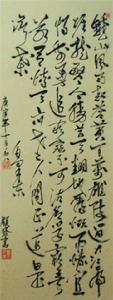 鍾山風雨起蒼黃百萬雄師過大江虎
踞龍盤今勝昔天翻地覆慨而慷宜
將剩勇追窮寇不可沽名學霸王天
若有情天亦老人間正道是
滄桑